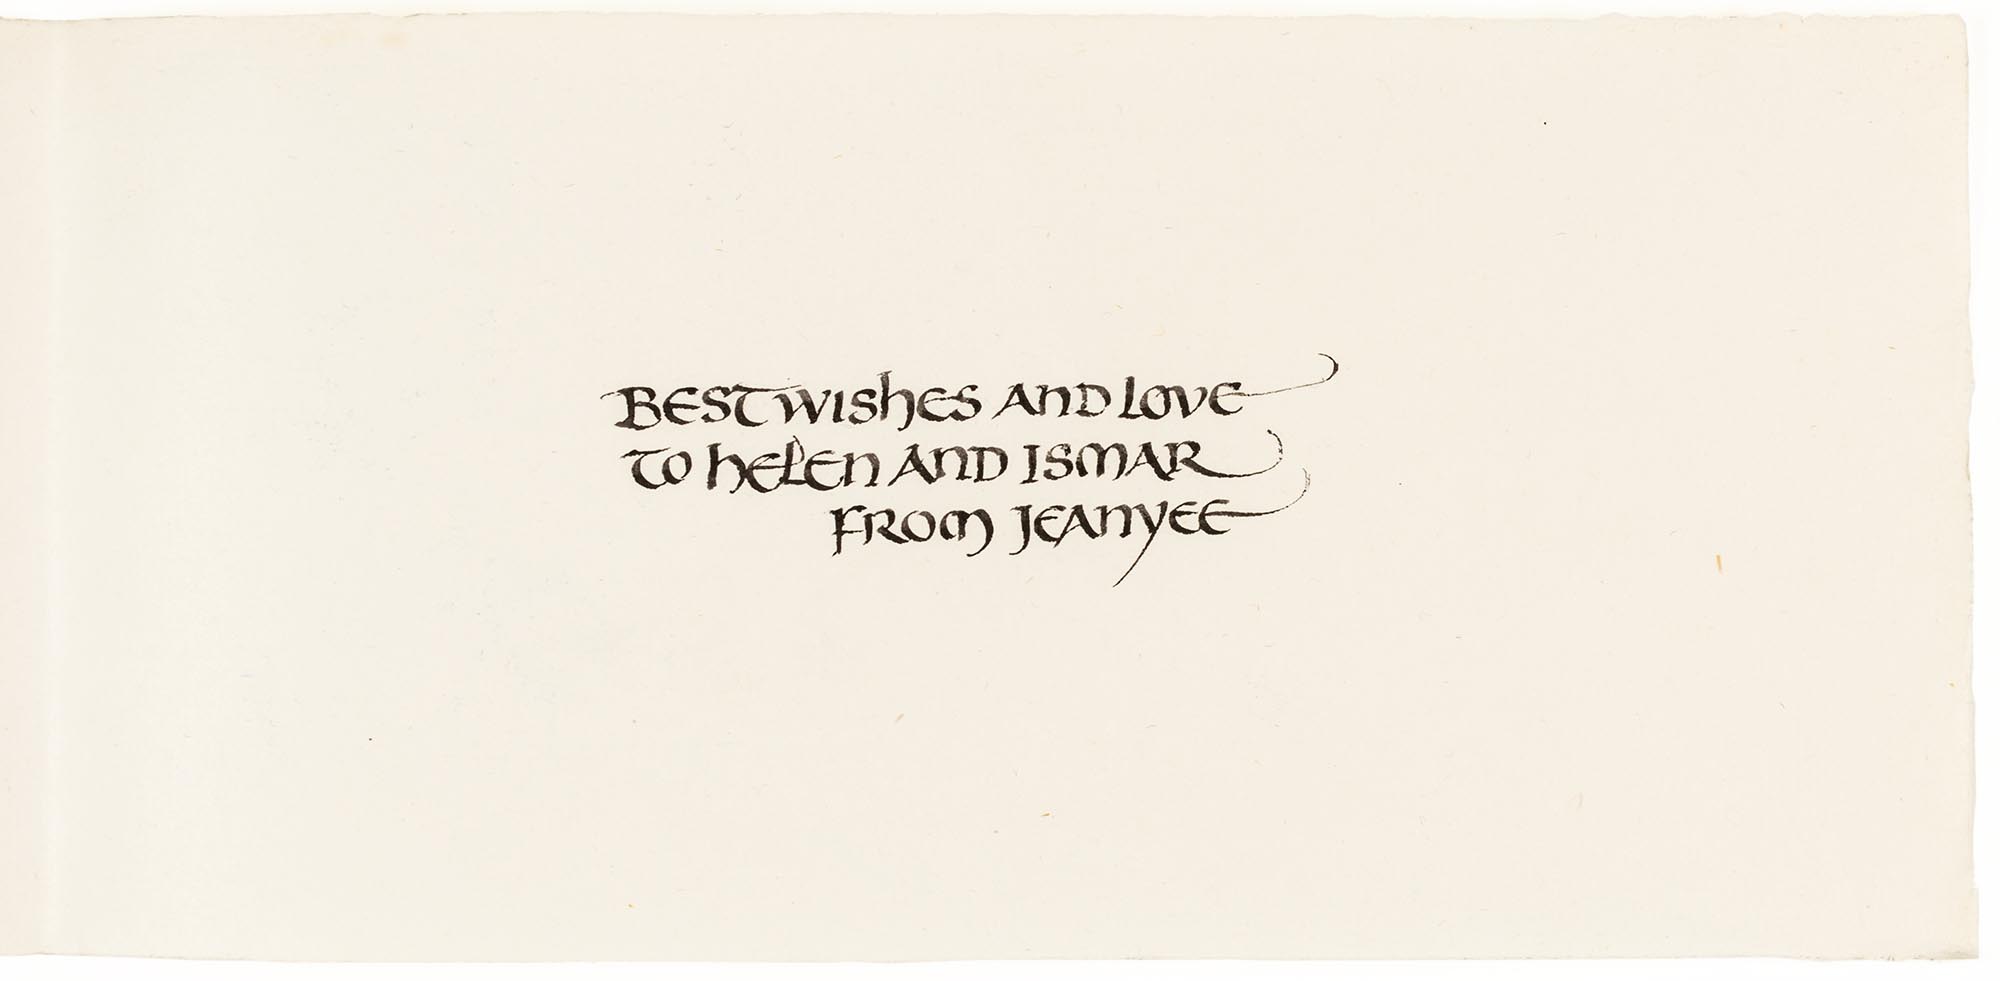 BEST WISHES AND LOVE
TO HELEN AND ISMAR
FROM JEANYEE